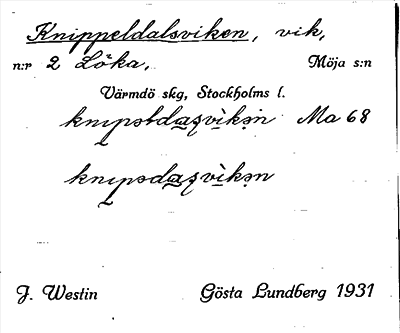 Knippeldalsviken, vik,
n:r 2 Löka, Möja s:n
Värmdö skg, Stockholms l.
Ma 68
J. Westin Gösta Lundberg 1931